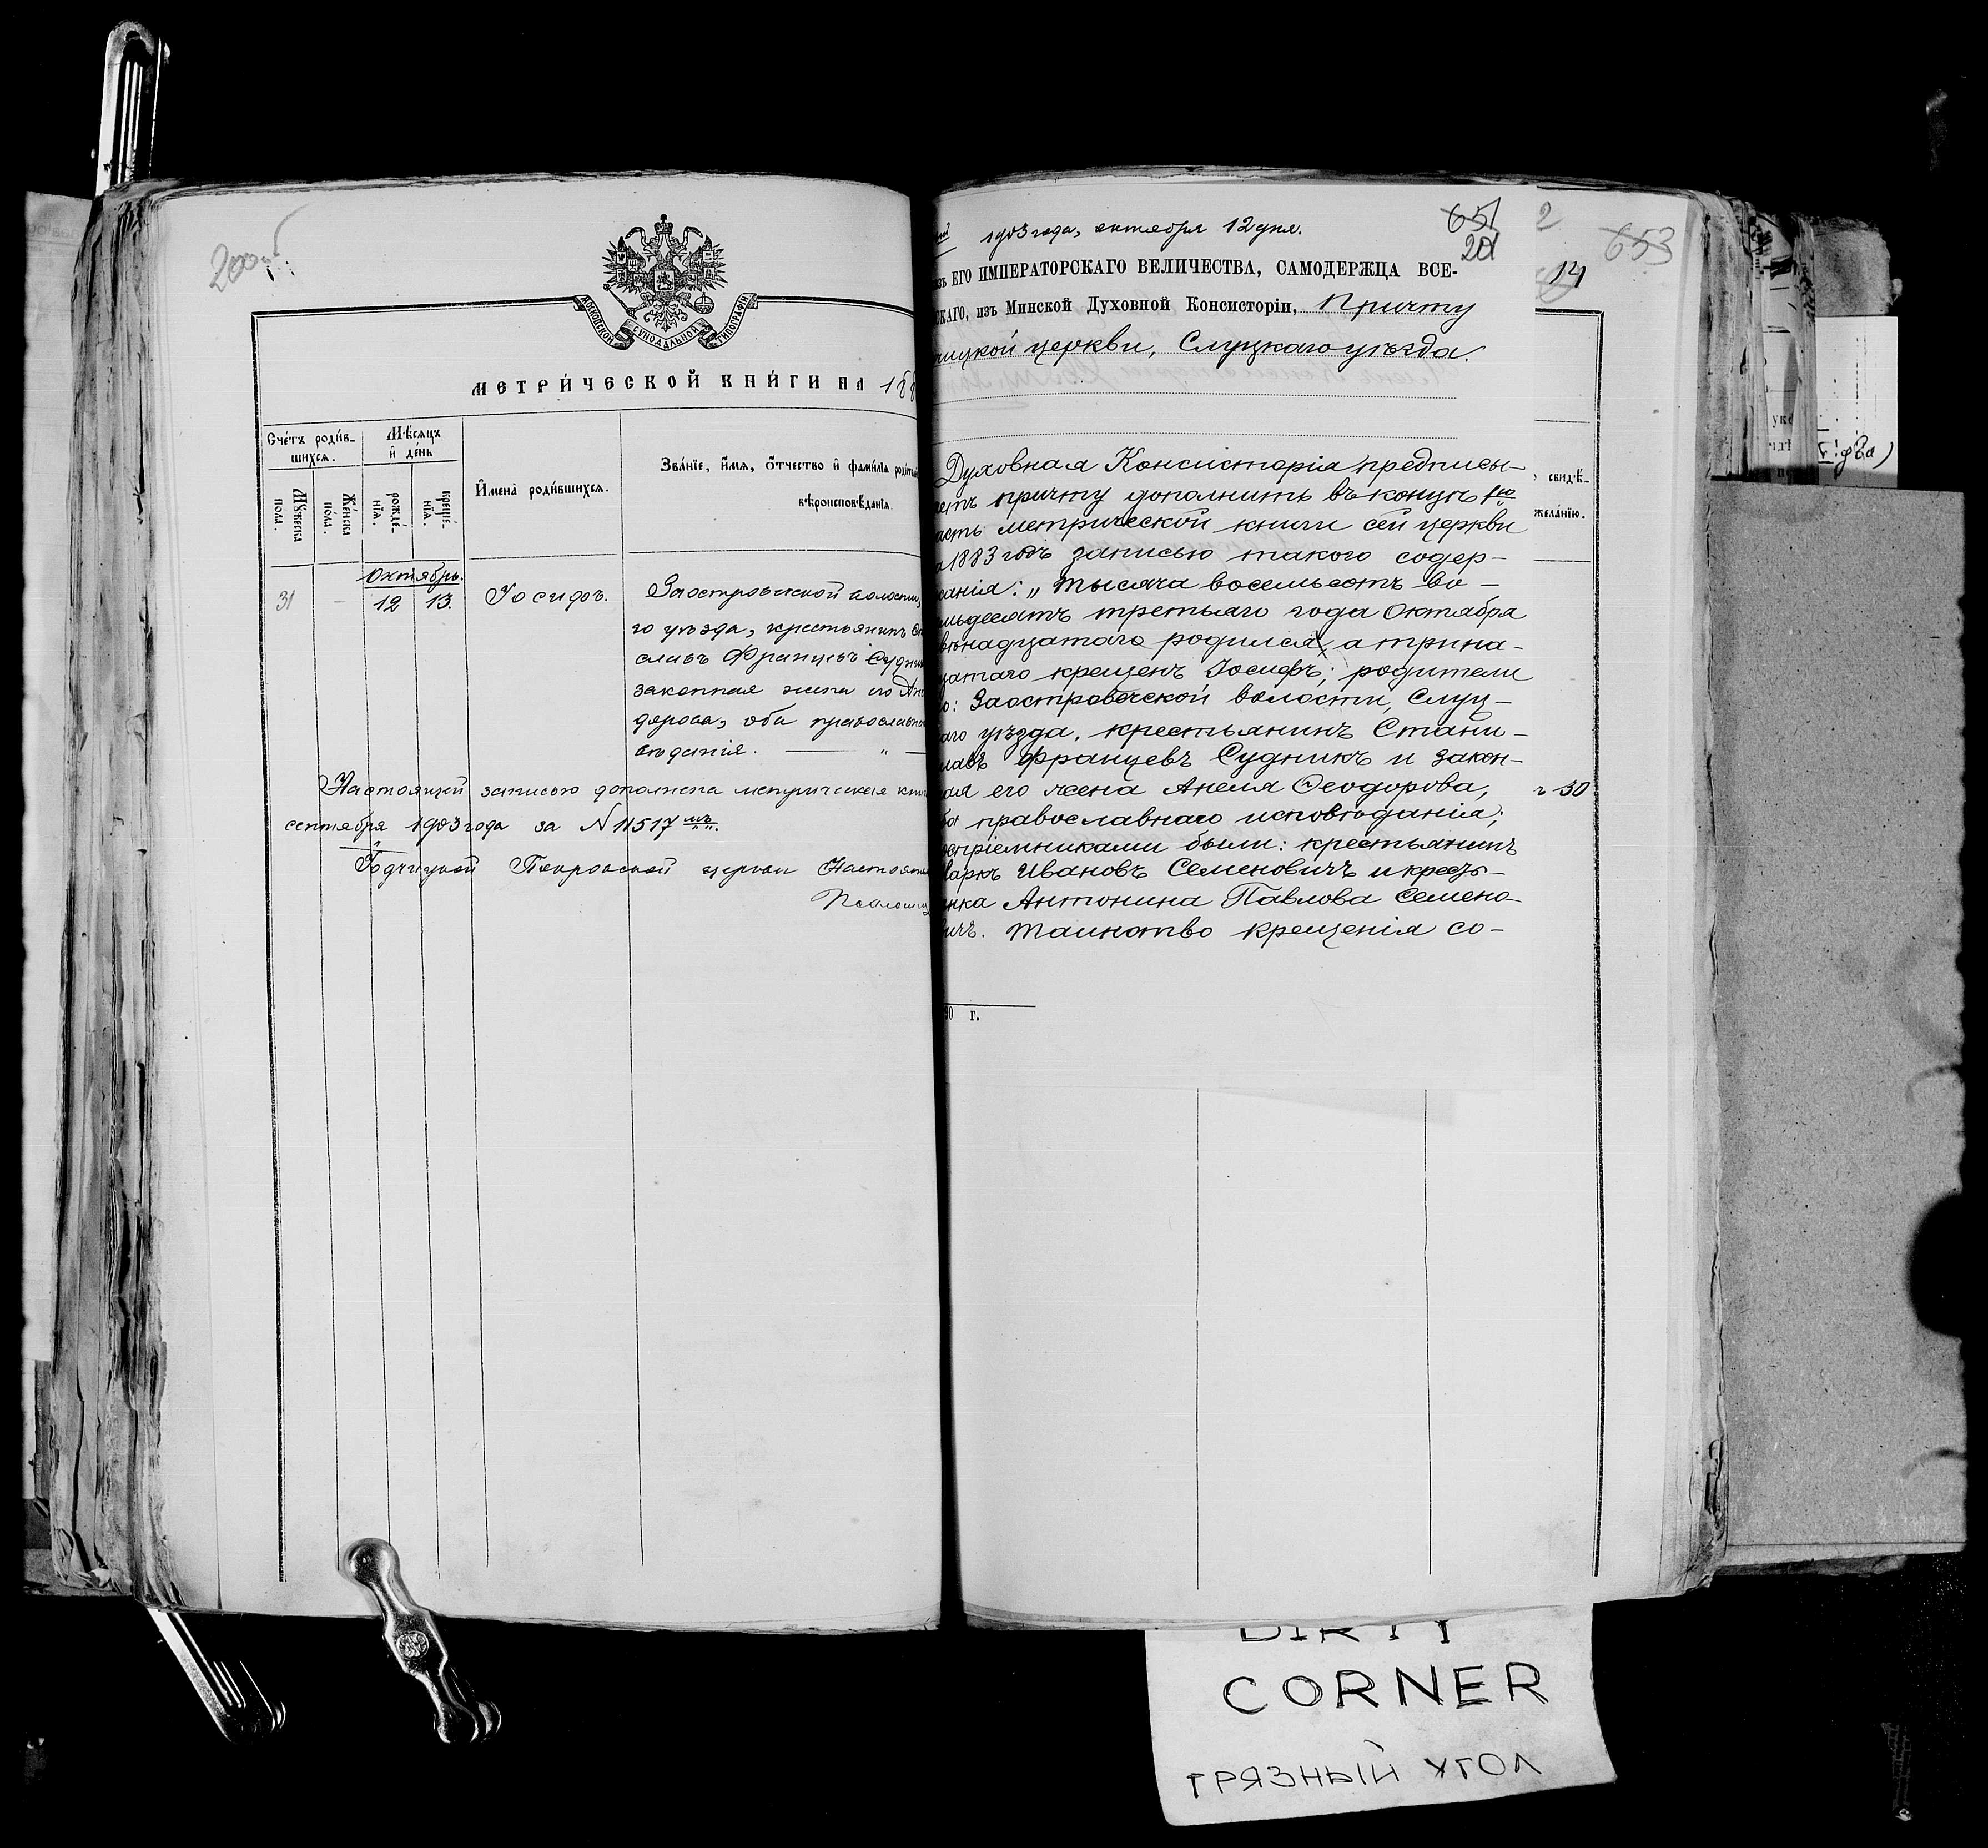 200
МОСКОВСКОЙ СѴНОДАЛЬНОЙ ТИПОГРАФІИ
МЕТРИ́ЧЕСКОЙ КНИ́ГИ НА 188
Сче́тъ роди́в-
шихся.
Мѣ́сяцъ
и҆ де́нь
Мꙋ́жеска
пола.
Же́нска
пола.
рожде́-
нїя.
креще́-
нїя.
И҆мена̀ роди́вшихся.
Зва́нїе, и҆́мя, ѻ҆́тчество и҆ фами́лїя роди́тел
вѣроисповѣ́данїя.
Октябрь.
31 – 12 13. Іосифъ.
Заостровечской волости,
го уѣзда, крестьянинъ Ста
славъ Францевъ Судни
законная жена его Ане
дорова, оба православна
вѣданія. — „ —
Настоящей записью дополнена метрическая кни
сентября 1903 года за № 11517мъ.
Іодчицкой Покровской церкви Настояте
1903 года, октября 12 дня.
651
201
зъ ЕГО ИМПЕРАТОРСКАГО ВЕЛИЧЕСТВА, САМОДЕРЖЦА ВСЕ-
СКАГО, изъ Минской Духовной Консисторіи, Причту
чицкой церкви, Слуцкаго уѣзда.
Духовная Консисторія предписы-
етъ причту дополнить въ концѣ 1ю
асть метрической книги сей церкви
а 1883 годъ записью такого содер-
жанія: „Тысяча восемьсотъ во-
мьдесятъ третьяго года Октября
вѣнадцатаго родился, а трина-
цатаго крещенъ Іосифъ; родители
о: Заостровечской волости, Слуц-
аго уѣзда, крестьянинъ Стани-
лавъ Францевъ Судникъ и закон-
ая его жена Анеля Ѳеодорова,
ба православнаго исповѣданія;
оспріемниками были: крестьянинъ
Маркъ Ивановъ Семеновичъ и кресть-
янка Антонина Павлова Семено-
вичъ. Таинство крещенія со-
90 г.
2
14
653
свидѣ-
жела́нїю.
30
ука
два)
DIRTY
CORNER
ГРЯЗНЫЙ УГОЛ